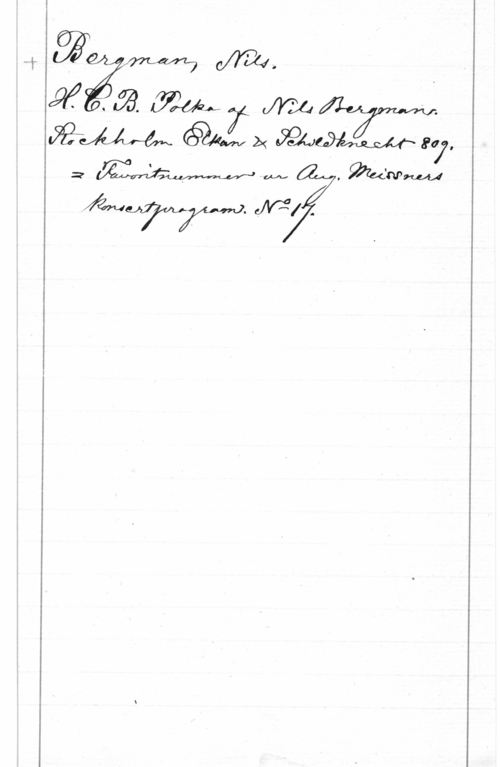 + Bergman, Nils.
H. C. B. Polka af Nils Bergman.
Stockholm Elkan & Schildknecht 809.
= Favoritnummer ur Aug. Meissners
konsertprogram. Nº 17.